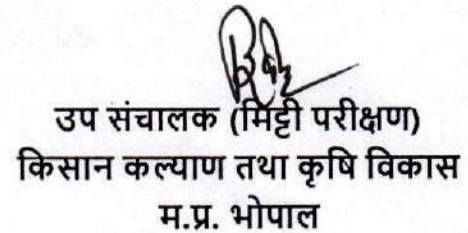 उप संचालक (मिट्टी परीक्षण)
किसान कल्याण तथा कृषि विकास
म.प्र. भोपाल